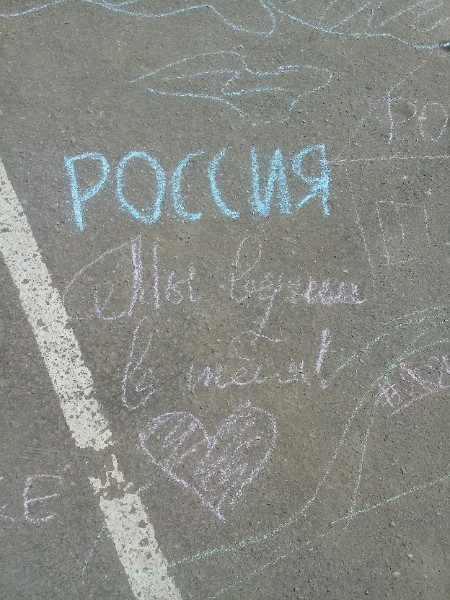 РО
РОССИЯ
Мы верим
в тебя!